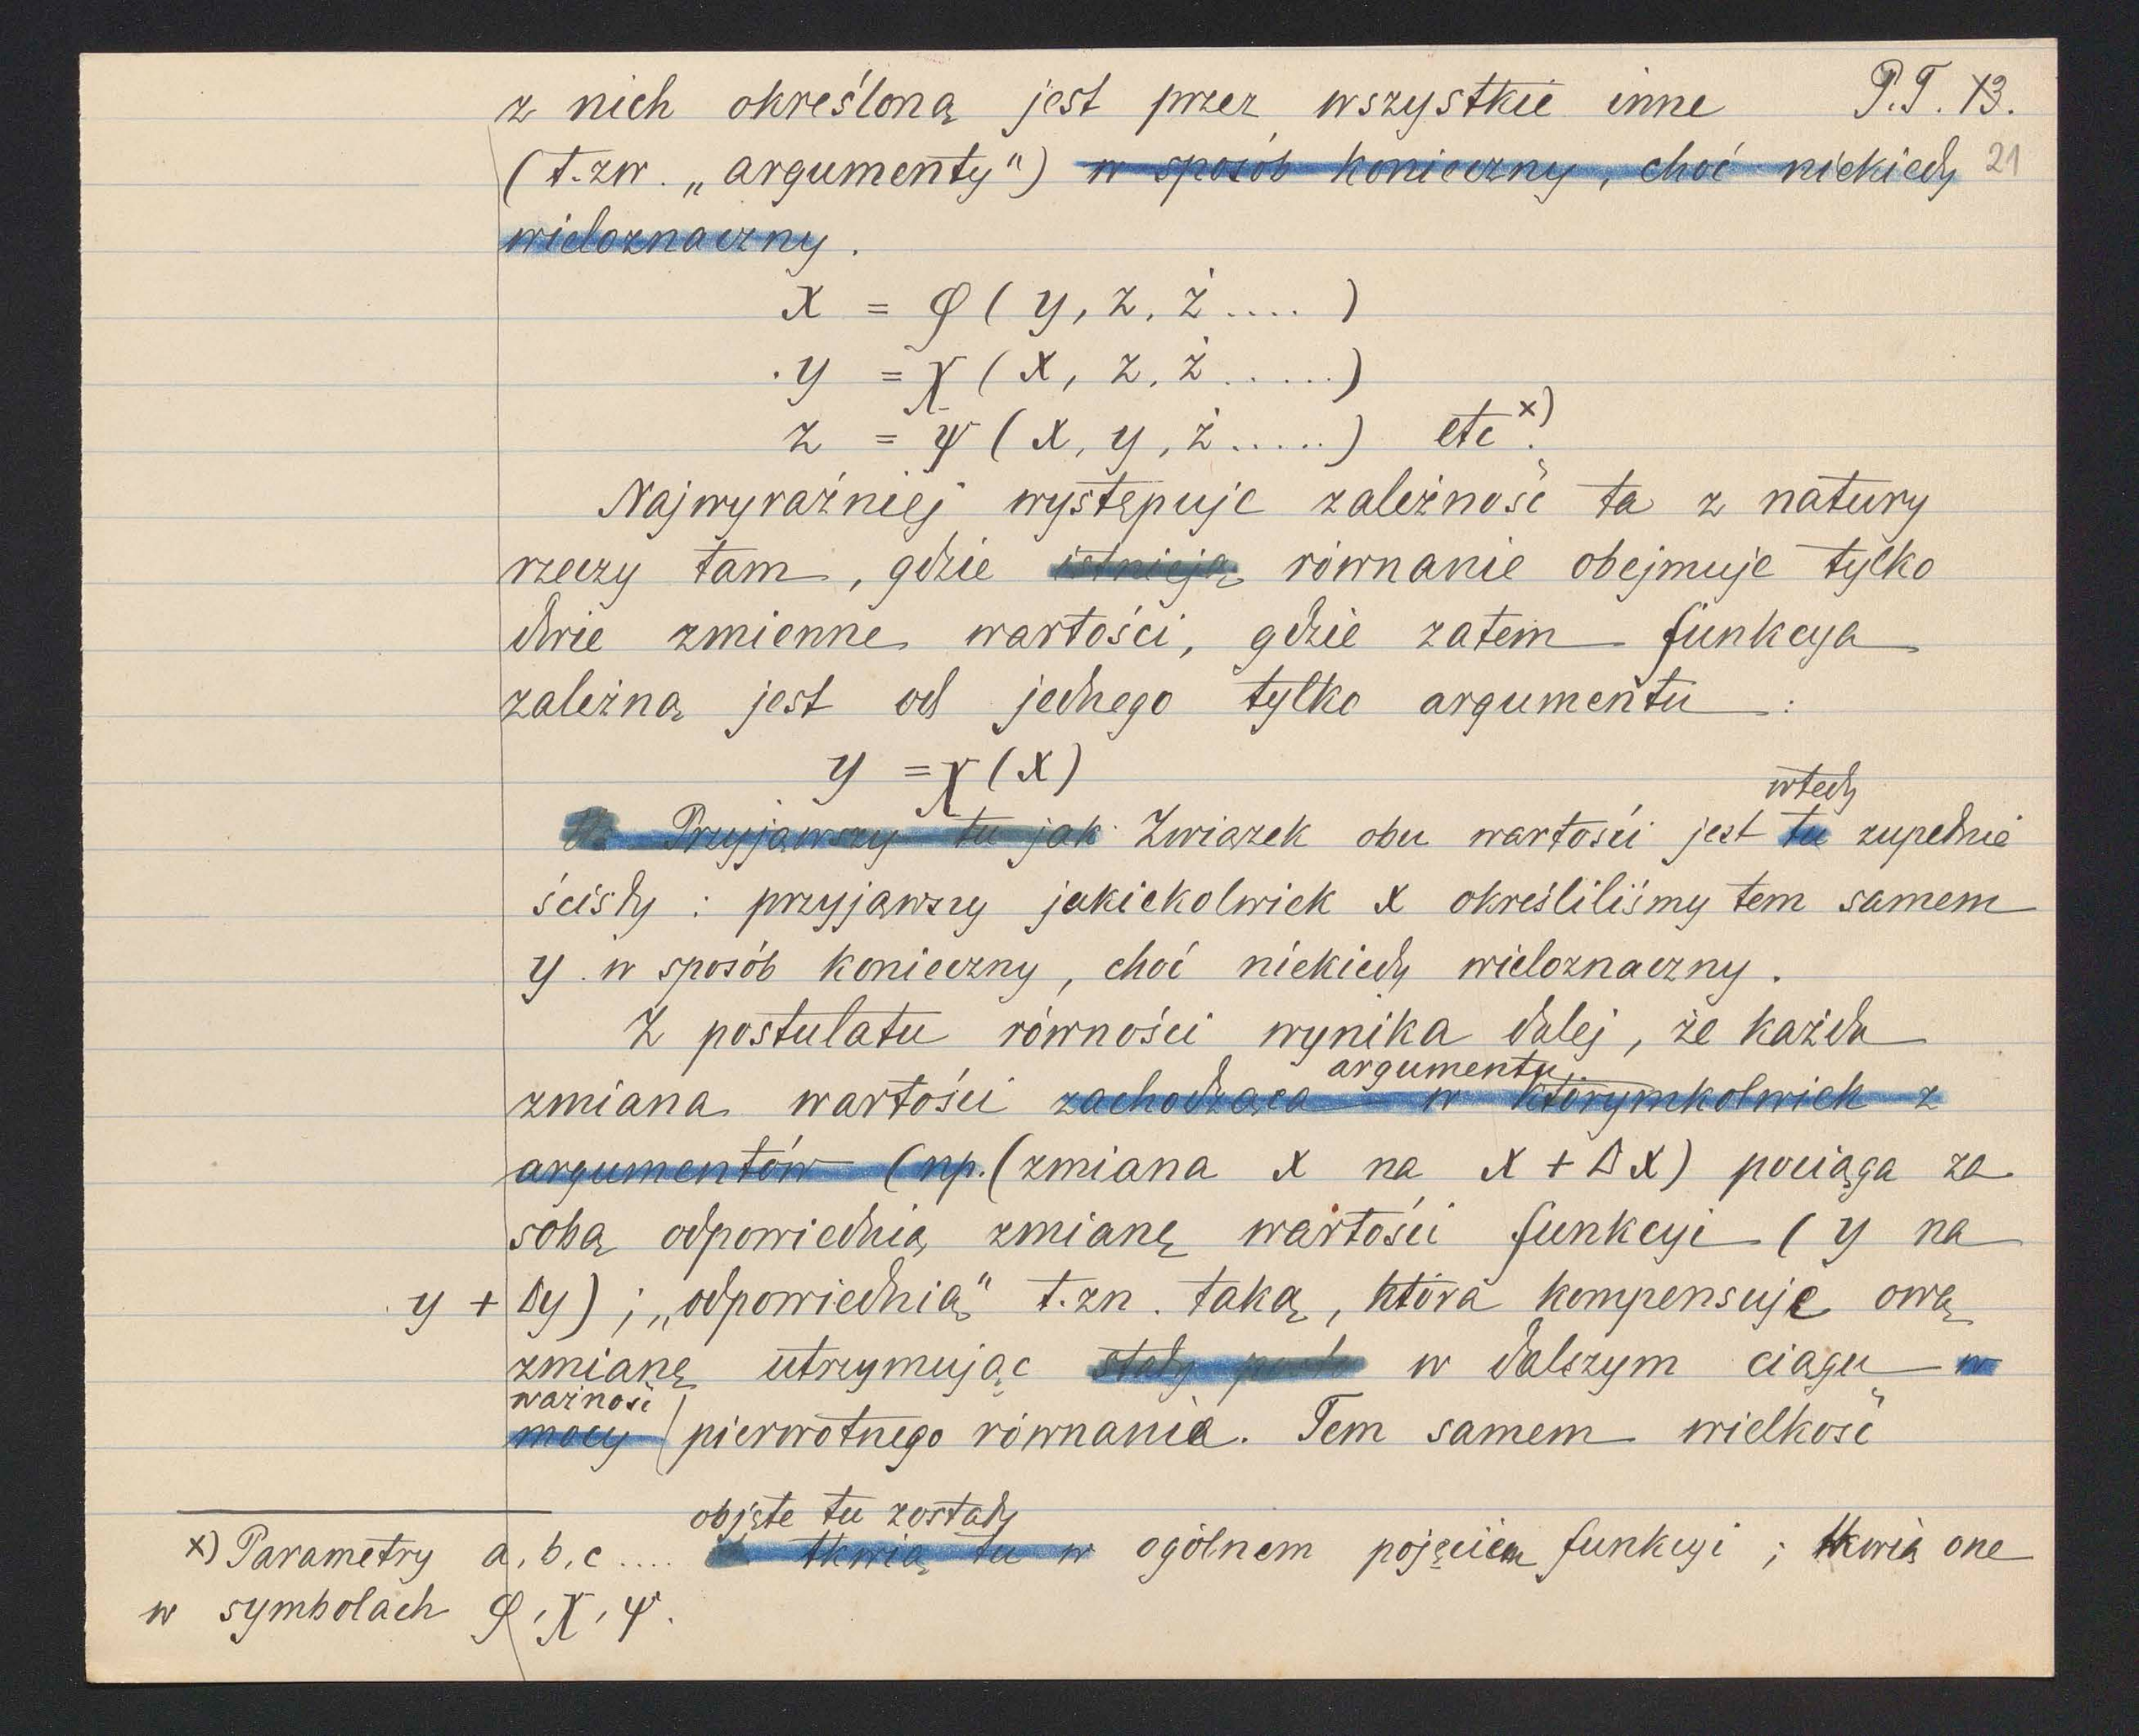 z nich określoną jest przez wszystkie inne P.T. 13.
(t.zw. „argumenty") w sposób konieczny, choć niekiedy 21
wieloznaczny.
x = φ ( y, z, ż .... )
y = χ ( x, z, ż ...... )
z = ψ ( x, y, ż ...... ) etc. x)
Najwyraźniej występuje zależność ta z natury
rzeczy tam, gdzie istnieją równanie obejmuje tylko
dwie zmienne wartości, gdzie zatem funkcya
zależną jest od jednego tylko argumentu :
y = χ (x)
wtedy
Przyjąwszy tu jak Związek obu wartości jest tu zupełnie
ścisły : przyjąwszy jakiekolwiek x określiliśmy tem samem
y w sposób konieczny, choć niekiedy wieloznaczny.
Z postulatu równości wynika dalej, że każda
argumentu
zmiana wartości zachodząca w którymkolwiek z
argumentów (np. (zmiana x na x + Δx) pociąga za
sobą odpowiednią zmianę wartości funkcyi ( y na
y + Δy) ; „odpowiednią" t.zn. taką, która kompensuje ową
zmianę utrzymując stały w dalszym ciągu w
ważność
mocy pierwotnego równania. Tem samem wielkość
objęte tu zostały
x) Parametry a, b, c .... tkwią tu w ogólnem pojęciem funkcyi ; tkwią one
w symbolach φ, χ, ψ.